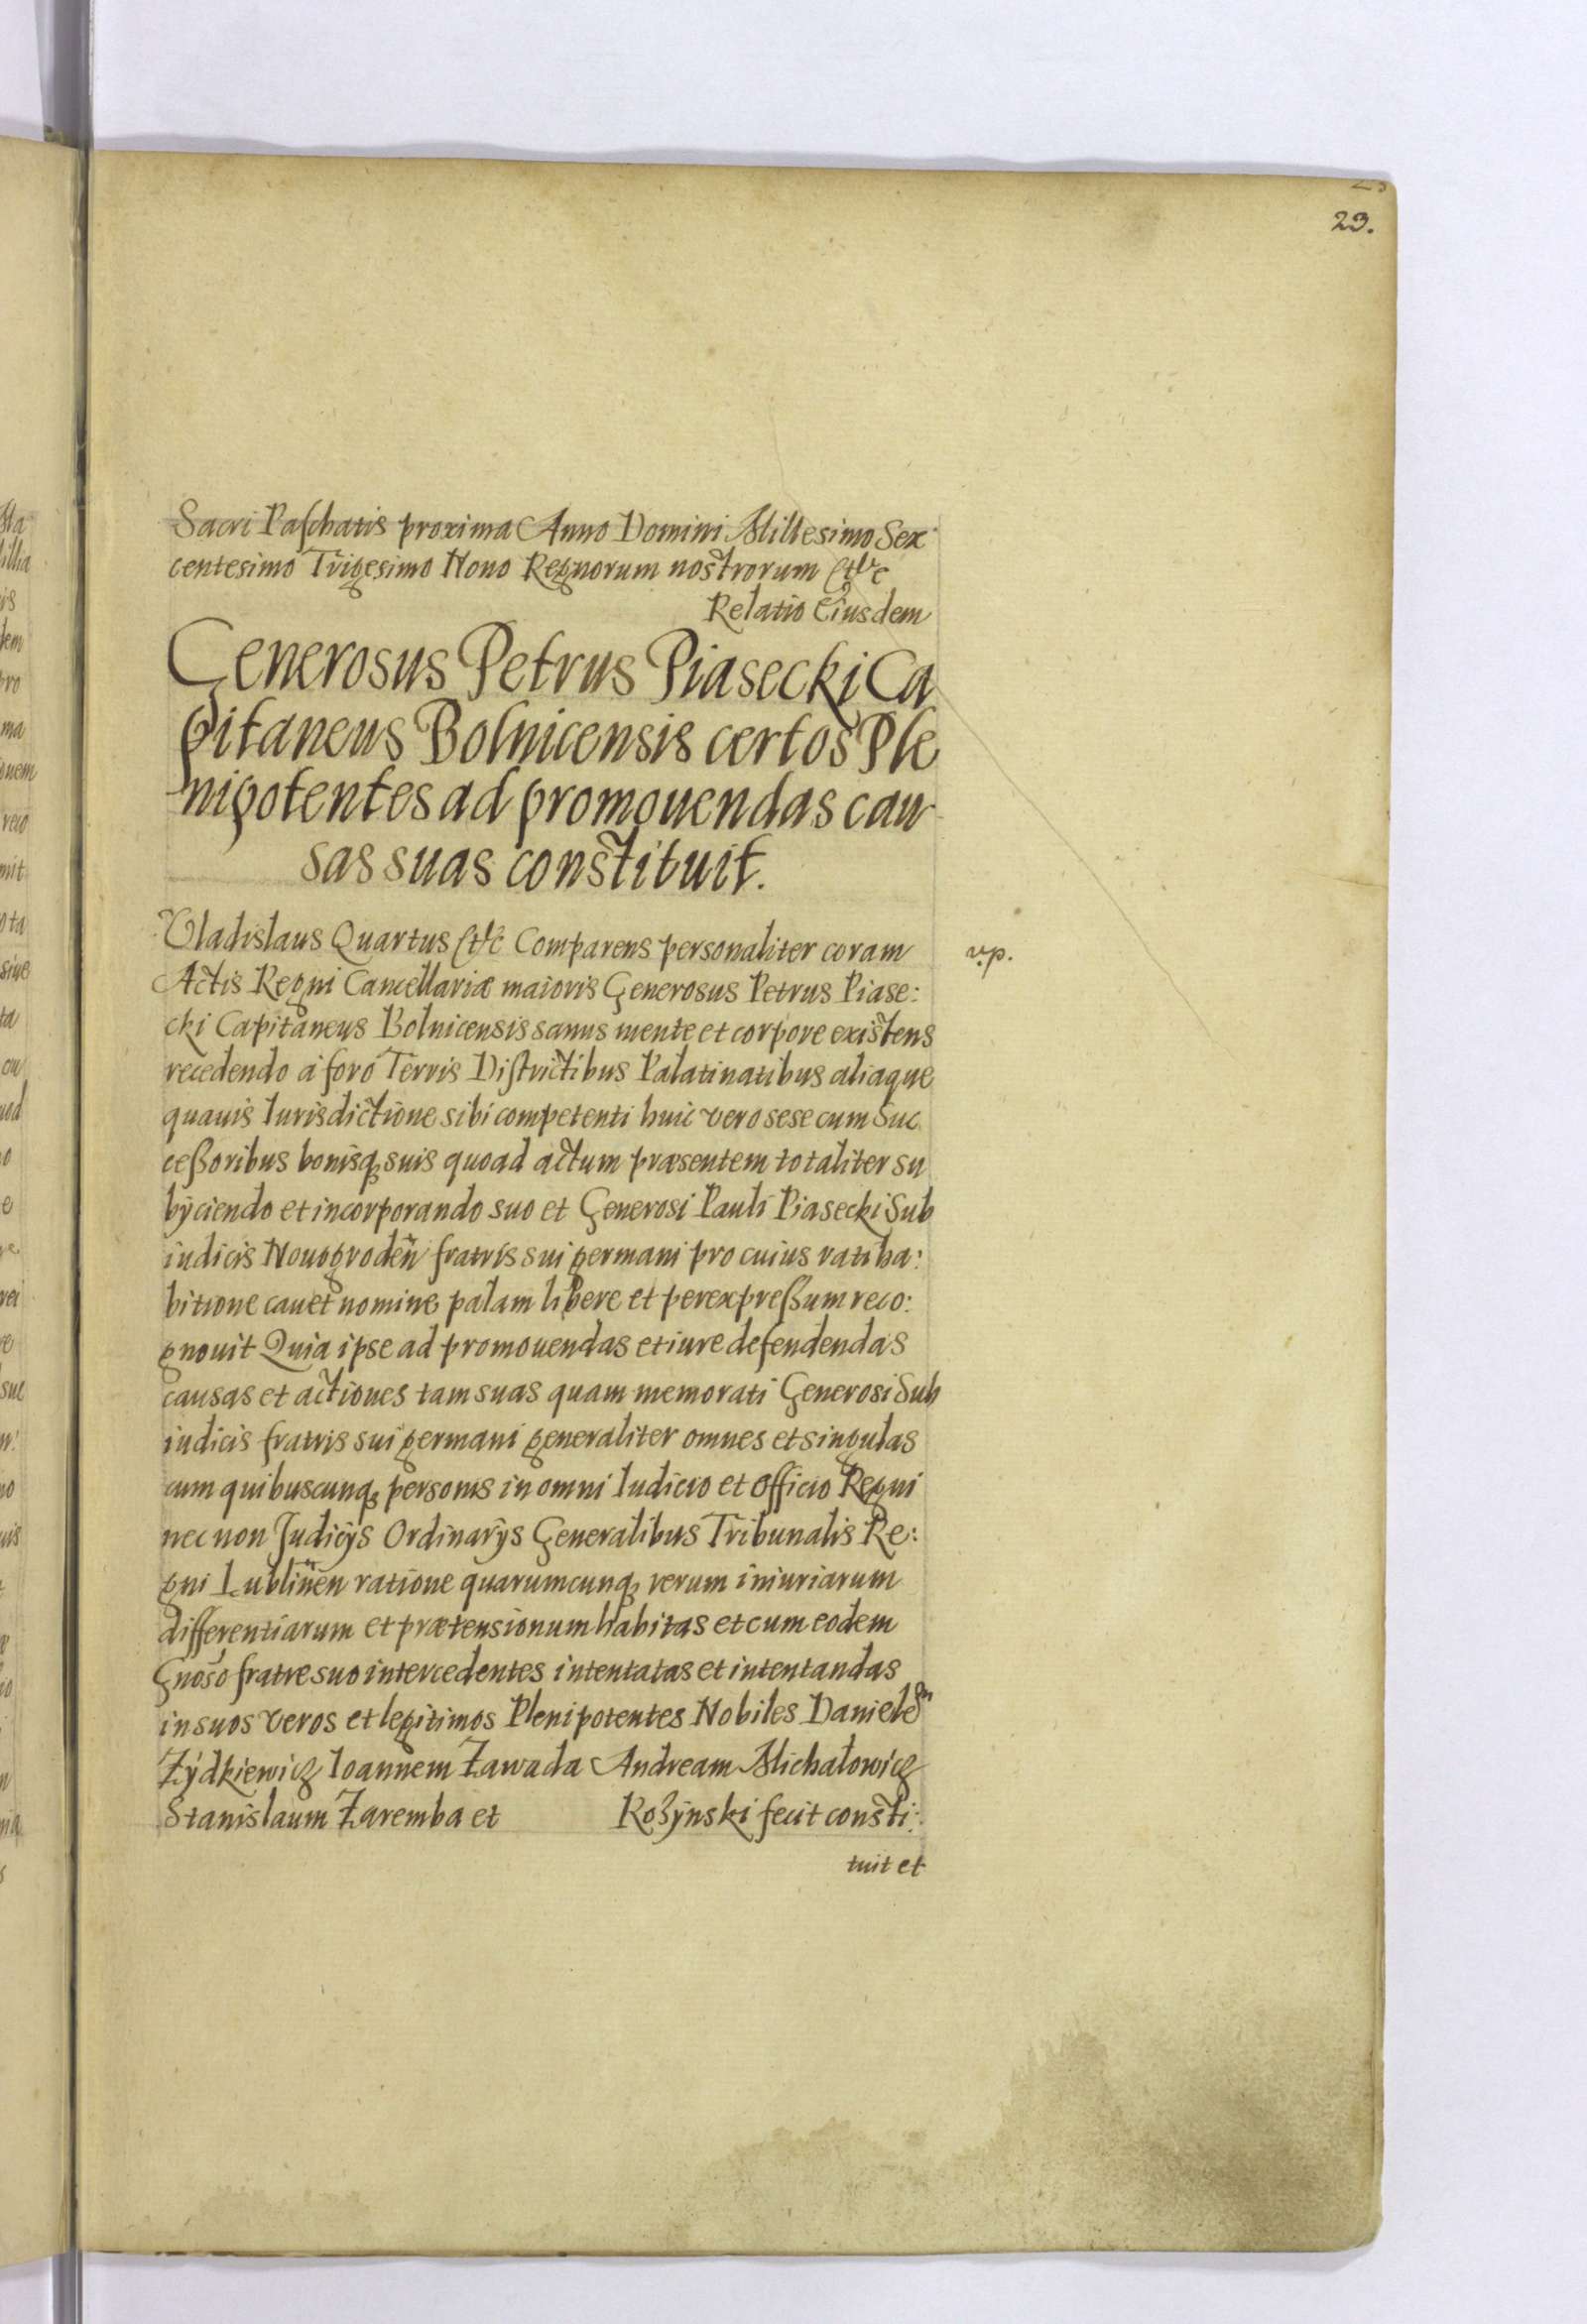 23.
Sacri Paschatis proxima Anno Domini Millesimo Sex
centesimo Trigesimo Nono Regnorum nostrorum etc
Relatio Eiusdem
Generosus Petrus Piasecki Ca
pitaneus Bolnicensis certos Ple
nipotentes ad promouendas cau
sas suas constituit.
Vladislaus Quartus etc Comparens personaliter coram
Actis Regni Cancellariæ maioris Generosus Petrus Piase:
cki Capitaneus Bolnicensis sanus mente et corpore existens
recedendo à foro Terris Districtibus Palatinatibus aliaque
quauis Iurisdictione sibi competenti huic vero sese cum Suc
ceßoribus bonisq; suis quoad actum præsentem totaliter su
bÿciendo et incorporando suo et Generosi Pauli Piasecki Sub
iudicis Nouogroden̄ fratris sui germani pro cuius ratiha:
bitione cauet nomine palam libere et per expreßum reco:
gnouit Quia ipse ad promouendas et iure defendendas
causas et actiones tam suas quam memorati Generosi Sub
iudicis fratris sui germani generaliter omnes et singulas
cum quibuscunq; personis in omni Iudicio et Officio Regni
nec non Judicÿs Ordinarÿs Generalibus Tribunalis Re:
gni Lublinen̄ ratione quarumcunq; rerum iniuriarum
differentiarum et prætensionum habitas et cum eodem
Gnoso fratre suo intercedentes intentatas et intentandas
in suos veros et legitimos Plenipotentes Nobiles Danielem
Zÿdkiewicz Ioannem Zawada Andream Michałowicz
Stanislaum Zaremba et Kozÿnski fecit consti:
tuit et